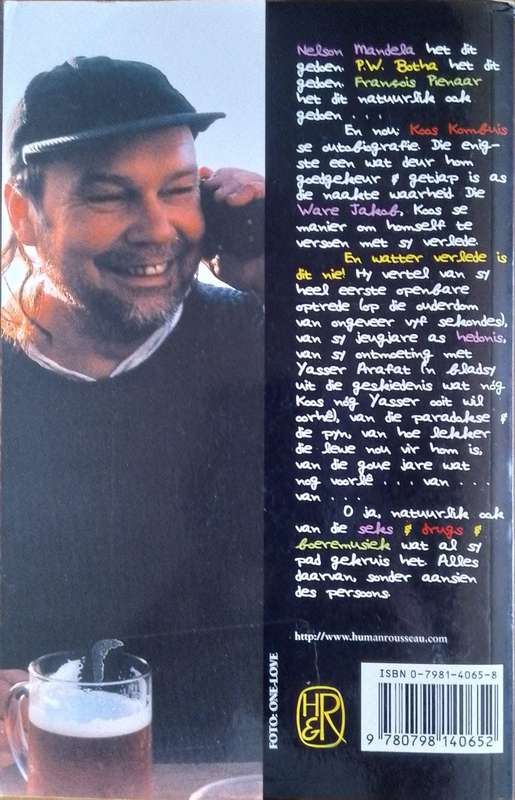 Nelson Mandela het dit
gedoen. P.W. Botha het dit
gedoen. François Pienaar
het dit natuurlik ook
gedoen . . .
En nou: Koos Kombuis
se outobiografie. Die enig-
ste een wat deur hom
goedgekeur & getjap is as
die naakte waarheid. Die
Ware Jakob. Koos se
manier om homself te
versoen met sy verlede.
En watter verlede is
dit nie! Hy vertel van sy
heel eerste openbare
optrede (op die ouderdom
van ongeveer vyf sekondes),
van sy jeugjare as hedonis,
van sy ontmoeting met
Yasser Arafat ('n bladsy
uit die geskiedenis wat nóg
Koos nóg Yasser ooit wil
oorhê), van die paradokse &
die pyn, van hoe lekker
die lewe nou vir hom is,
van die goue jare wat
nog voorlê . . . van . . .
van . . .
O ja, natuurlik ook
van die seks & drugs &
boeremusiek wat al sy
pad gekruis het. Alles
daarvan, sonder aansien
des persoons.
http://www.humanrousseau.com
FOTO: ONE-LOVE
H&R
ISBN 0-7981-4065-8
9 780798 140652